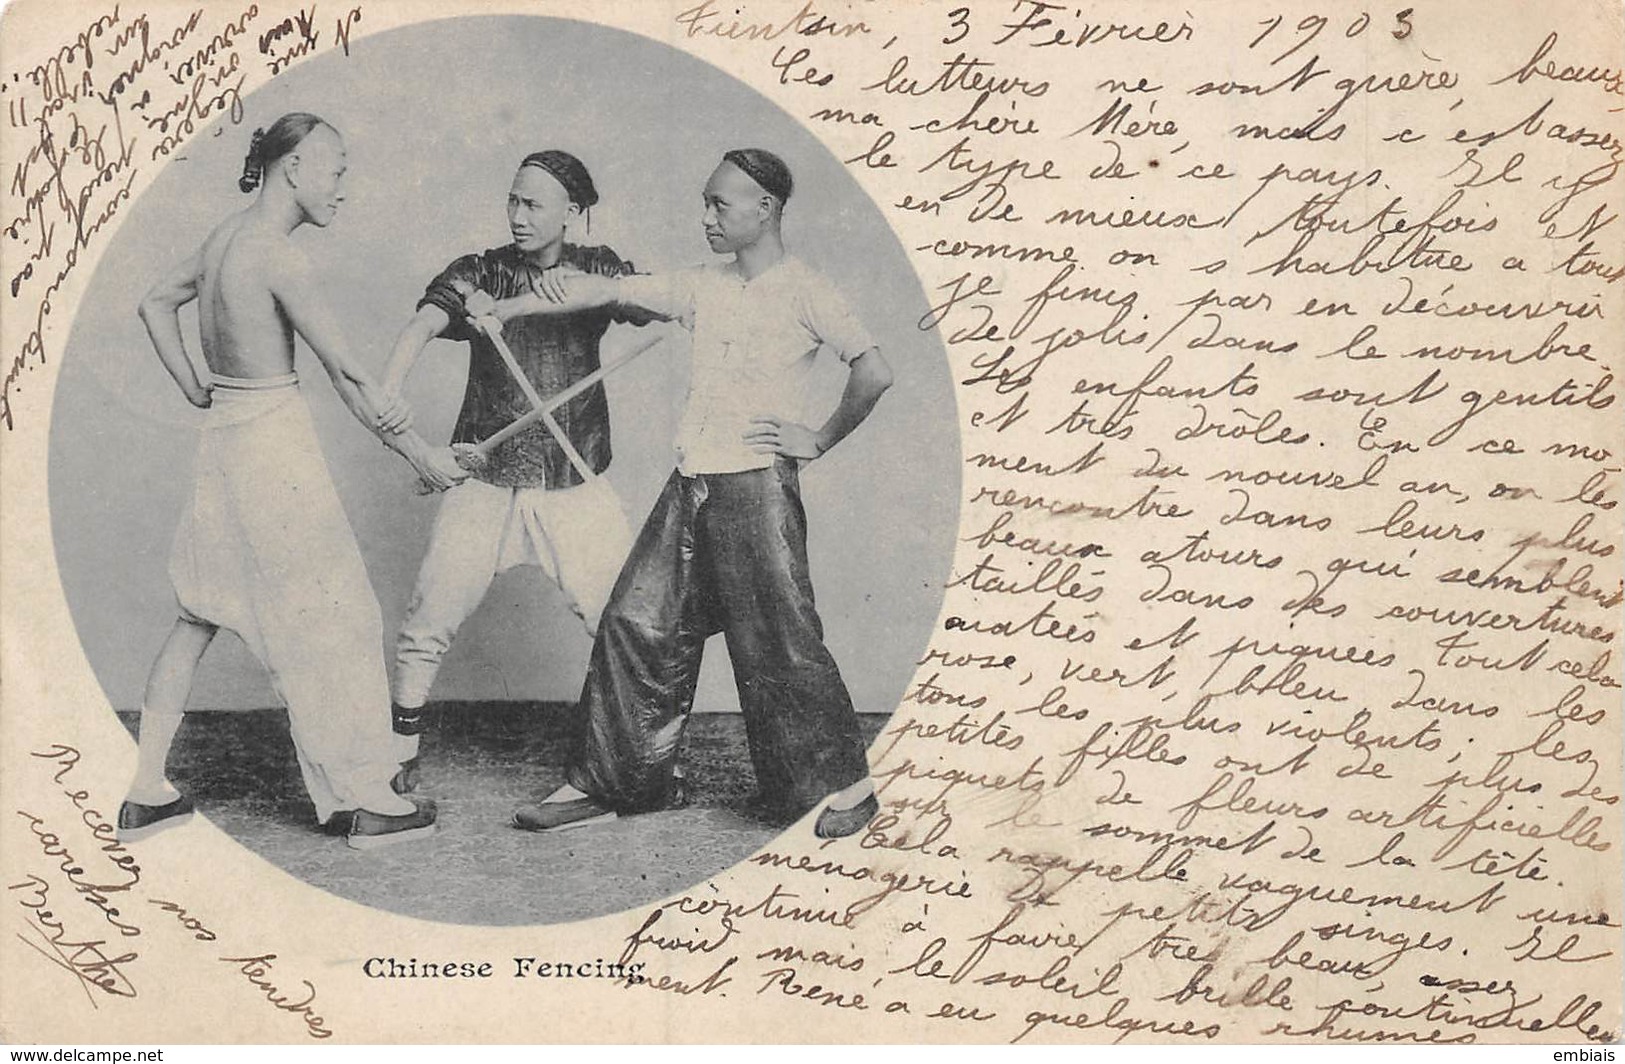 Tientsin, 3 Février 1903
Ces lutteurs ne sont guère beaux,
ma chère Mère, mais c'est assez
le type de ce pays. Il y
en a de mieux, toutefois et
comme on s'habitue à tout
je finis par en découvrir
de jolis dans le nombre.
Les enfants sont gentils
et très drôles. En ce mo-
ment du nouvel an, on les
rencontre dans leurs plus
beaux atours qui semblent
taillés dans des couvertures
ouatées et piquées tout cela
rose, vert, bleu, dans les
tons les plus violents; les
petites filles ont de plus des
piquets de fleurs artificielles
sur le sommet de la tête.
Cela rappelle vaguement une
ménagerie de petits singes. Il
continue à faire très beau, assez
froid mais le soleil brille continuelle
ment. René a eu quelques rhumes
et une légère conjonctivite
sans origine
arriver à
soigner
un rebelle...!!
Recevez nos tendres
caresses
Berthe
Chinese Fencing
embiais
https://www.delcampe.net